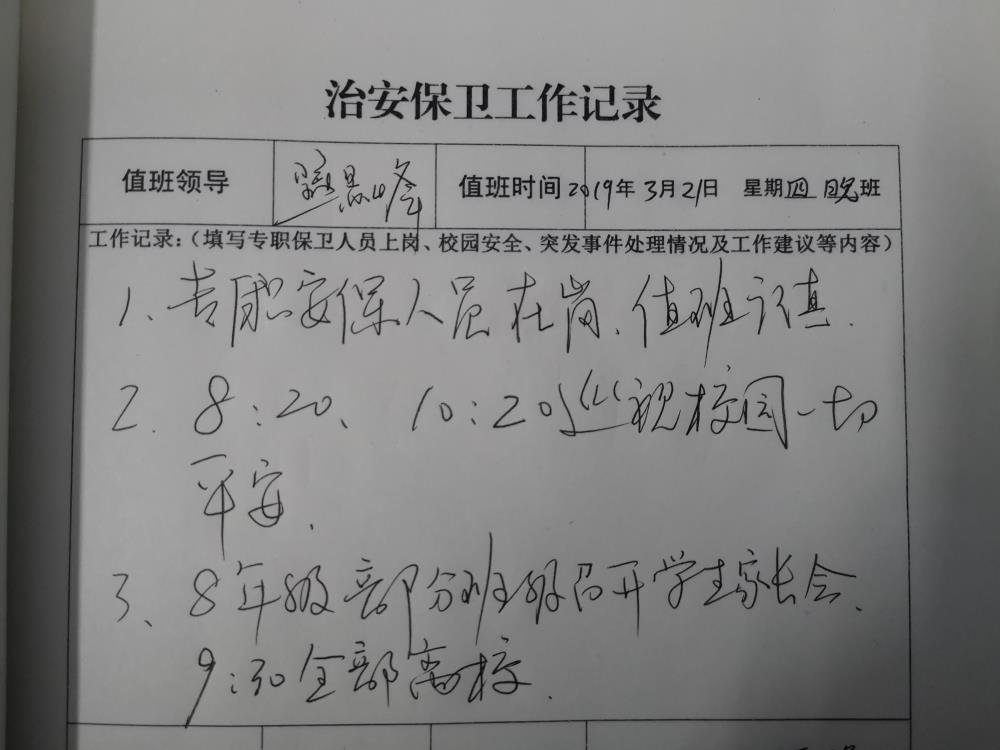 治安保卫工作记录
值班领导 值班时间 2019年 3月21日 星期四 晚班
工作记录:(填写专职保卫人员上岗、校园安全、突发事件处理情况及工作建议等内容)
1、专职安保人员在岗、值班认真.
2. 8:20、 10:20巡视校园一切
平安.
3、8年级部分班级召开学生家长会、
9:30全部离校.